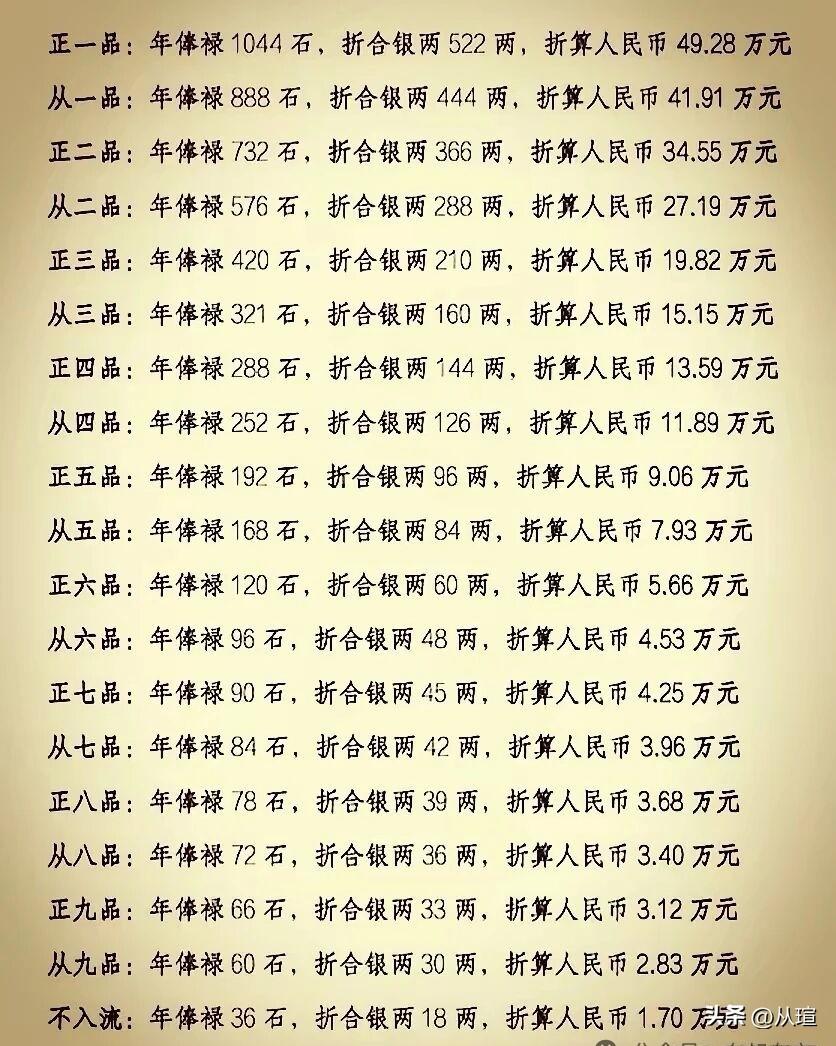 正一品：年俸禄 1044 石，折合银两 522 两，折算人民币 49.28 万元
从一品：年俸禄 888 石，折合银两 444 两，折算人民币 41.91 万元
正二品：年俸禄 732 石，折合银两 366 两，折算人民币 34.55 万元
从二品：年俸禄 576 石，折合银两 288 两，折算人民币 27.19 万元
正三品：年俸禄 420 石，折合银两 210 两，折算人民币 19.82 万元
从三品：年俸禄 321 石，折合银两 160 两，折算人民币 15.15 万元
正四品：年俸禄 288 石，折合银两 144 两，折算人民币 13.59 万元
从四品：年俸禄 252 石，折合银两 126 两，折算人民币 11.89 万元
正五品：年俸禄 192 石，折合银两 96 两，折算人民币 9.06 万元
从五品：年俸禄 168 石，折合银两 84 两，折算人民币 7.93 万元
正六品：年俸禄 120 石，折合银两 60 两，折算人民币 5.66 万元
从六品：年俸禄 96 石，折合银两 48 两，折算人民币 4.53 万元
正七品：年俸禄 90 石，折合银两 45 两，折算人民币 4.25 万元
从七品：年俸禄 84 石，折合银两 42 两，折算人民币 3.96 万元
正八品：年俸禄 78 石，折合银两 39 两，折算人民币 3.68 万元
从八品：年俸禄 72 石，折合银两 36 两，折算人民币 3.40 万元
正九品：年俸禄 66 石，折合银两 33 两，折算人民币 3.12 万元
从九品：年俸禄 60 石，折合银两 30 两，折算人民币 2.83 万元
不入流：年俸禄 36 石，折合银两 18 两，折算人民币 1.70 万元
头条 @从瑄